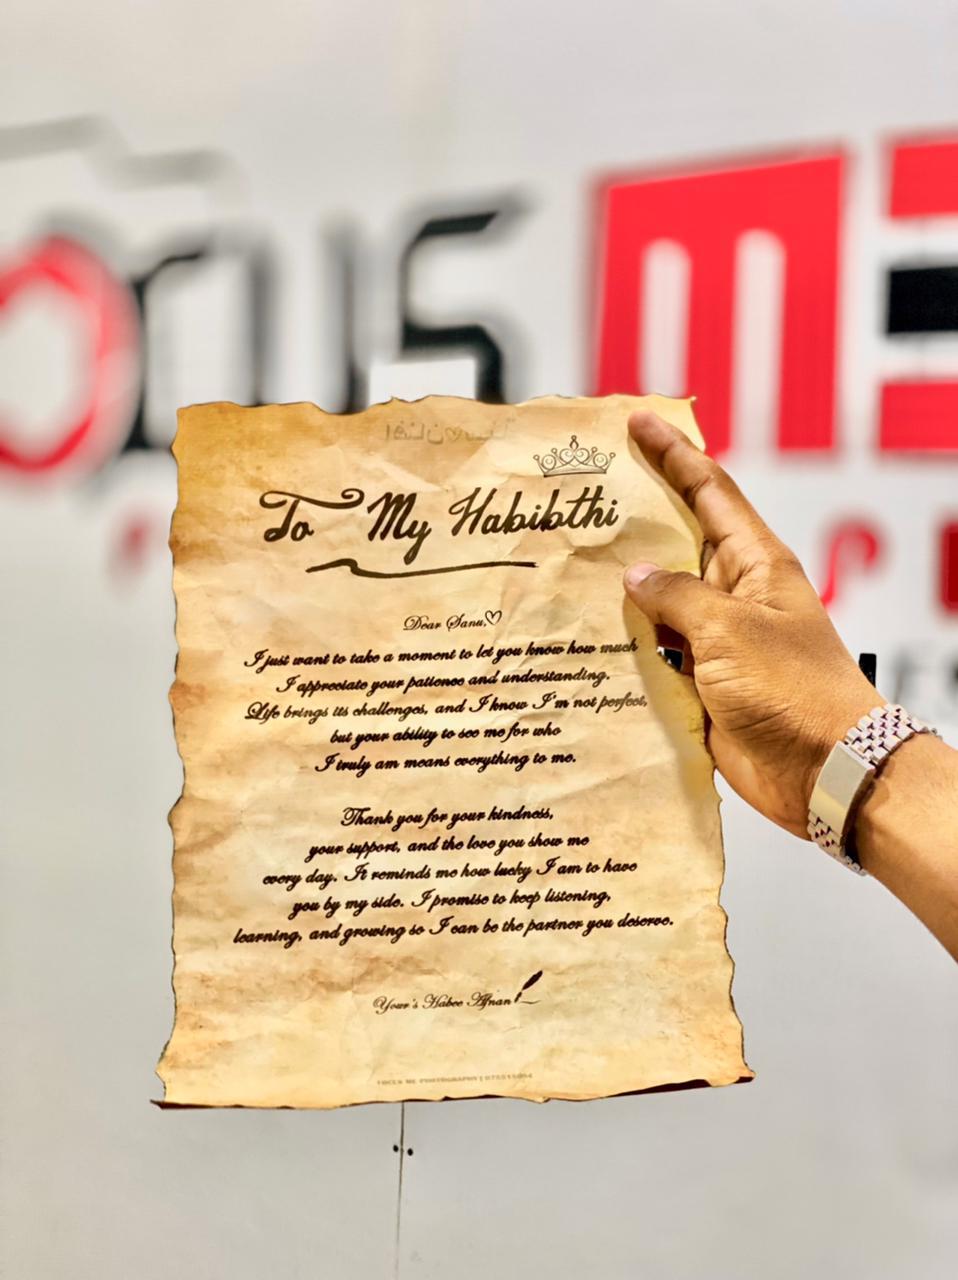 To My Habibthi
Dear Sanu,
I just want to take a moment to let you know how much
I appreciate your patience and understanding.
Life brings its challenges, and I know I'm not perfect,
but your ability to see me for who
I truly am means everything to me.
Thank you for your kindness,
your support, and the love you show me
every day. It reminds me how lucky I am to have
you by my side. I promise to keep listening,
learning, and growing so I can be the partner you deserve.
Your's Habee Afnan
FOCUS ME PHOTOGRAPHY |